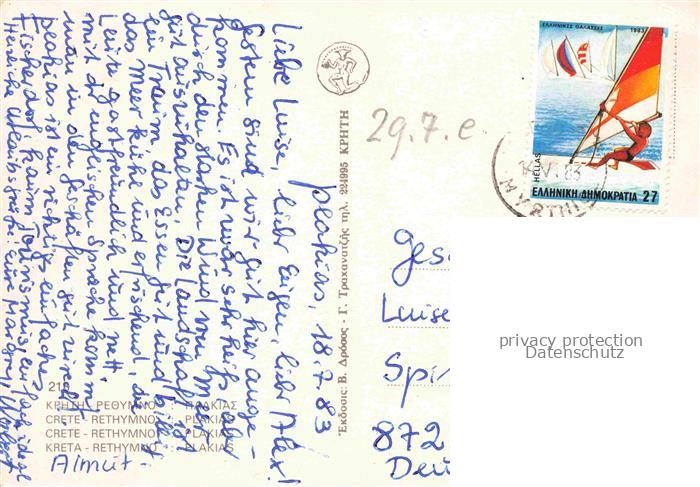 Plakias, 18.7.83
Liebe Luise, lieber Eugen, lieber Alex!
Gestern sind wir gut hier ange-
kommen. Es ist zwar sehr heiß, aber
durch den starken Wind vom Meer
gut auszuhalten. Die Landschaft ist
ein Traum, das Essen gut und billig,
das Meer kühl und erfrischend, die
Leute gastfreundlich und nett
mit der englischen Sprache kommt
man in den Geschäften gut zurecht.
Plakias ist ein richtig einfaches
Fischerdorf, kaum Tourismus, einfach ideal
Herzliche Urlaubsgrüße Eure Margret,
Almut
210
ΚΡΗΤΗ - ΡΕΘΥΜΝΟ : ΠΛΑΚΙΑΣ
CRETE - RETHYMNO : PLAKIAS
CRETE - RETHYMNO : PLAKIAS
KRETA - RETHYMNO : PLAKIAS
Ἐκδοσις: Β. Δρόσος - Γ. Τραχανατζῆς τηλ. 224995 ΚΡΗΤΗ
29.7.e.
ΕΛΛΗΝΙΚΕΣ ΘΑΛΑΣΣΕΣ 1983
HELLAS
ΕΛΛΗΝΙΚΗ ΔΗΜΟΚΡΑΤΙΑ 27
Ges
Luise
Spi
872
Deu
privacy protection
Datenschutz